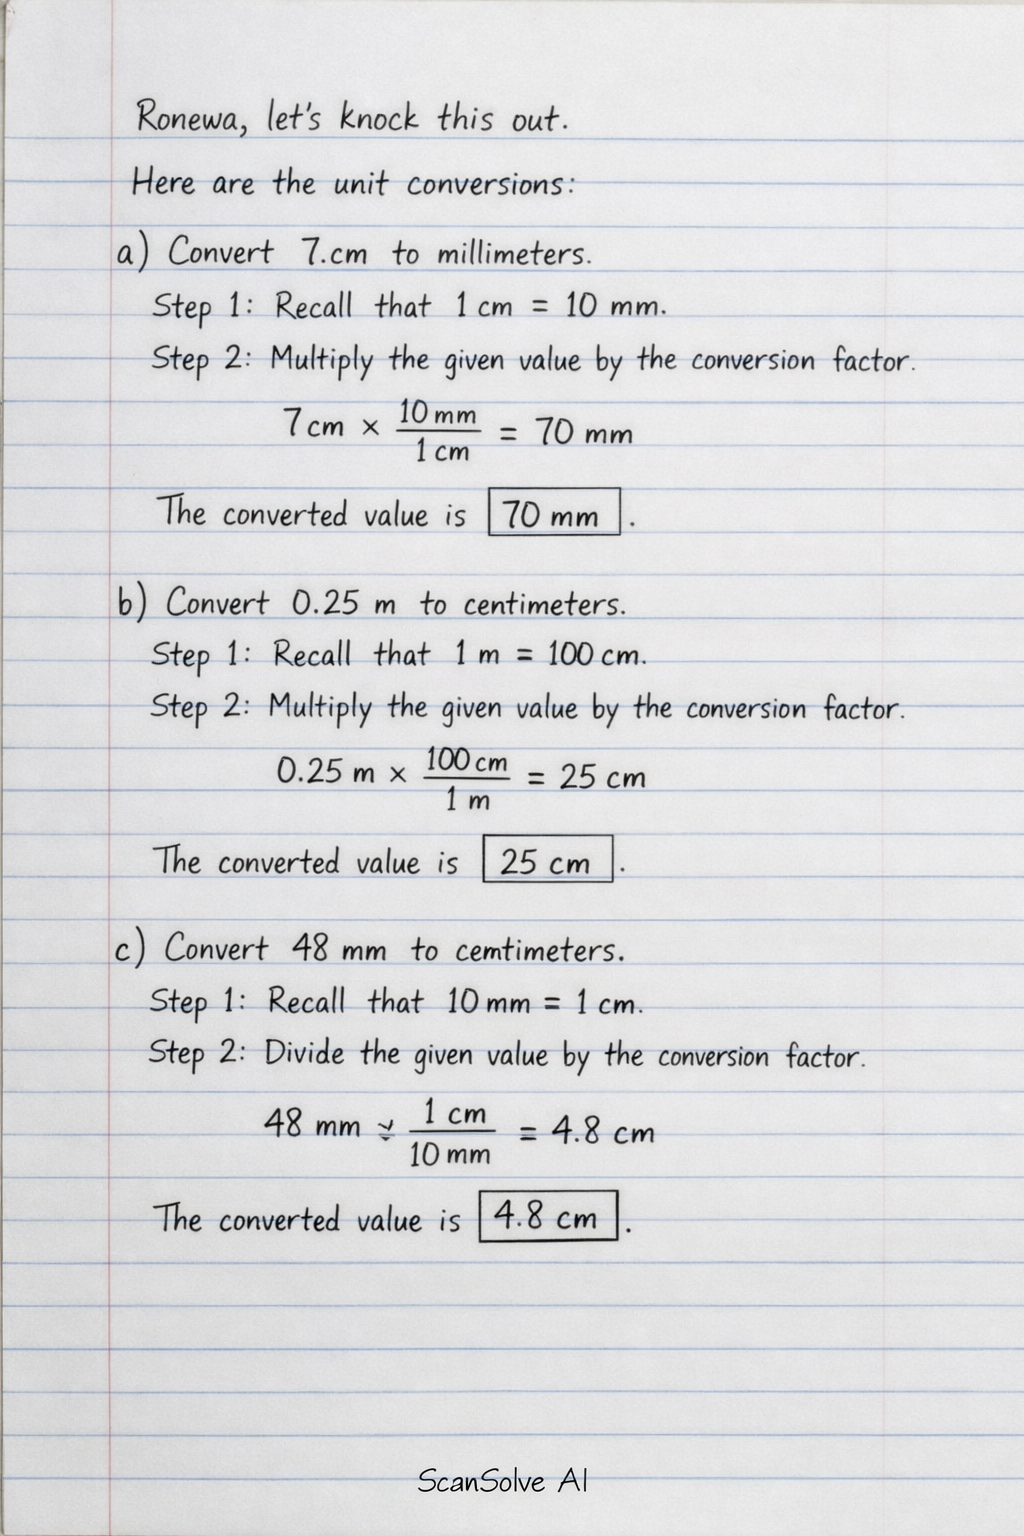 Ronewa, let's knock this out.
Here are the unit conversions:
a) Convert 7.cm to millimeters.
Step 1: Recall that 1 cm = 10 mm.
Step 2: Multiply the given value by the conversion factor.
7 cm × 10 mm / 1 cm = 70 mm
The converted value is 70 mm.
b) Convert 0.25 m to centimeters.
Step 1: Recall that 1 m = 100 cm.
Step 2: Multiply the given value by the conversion factor.
0.25 m × 100 cm / 1 m = 25 cm
The converted value is 25 cm.
c) Convert 48 mm to cemtimeters.
Step 1: Recall that 10 mm = 1 cm.
Step 2: Divide the given value by the conversion factor.
48 mm 1 cm / 10 mm = 4.8 cm
The converted value is 4.8 cm.
ScanSolve AI